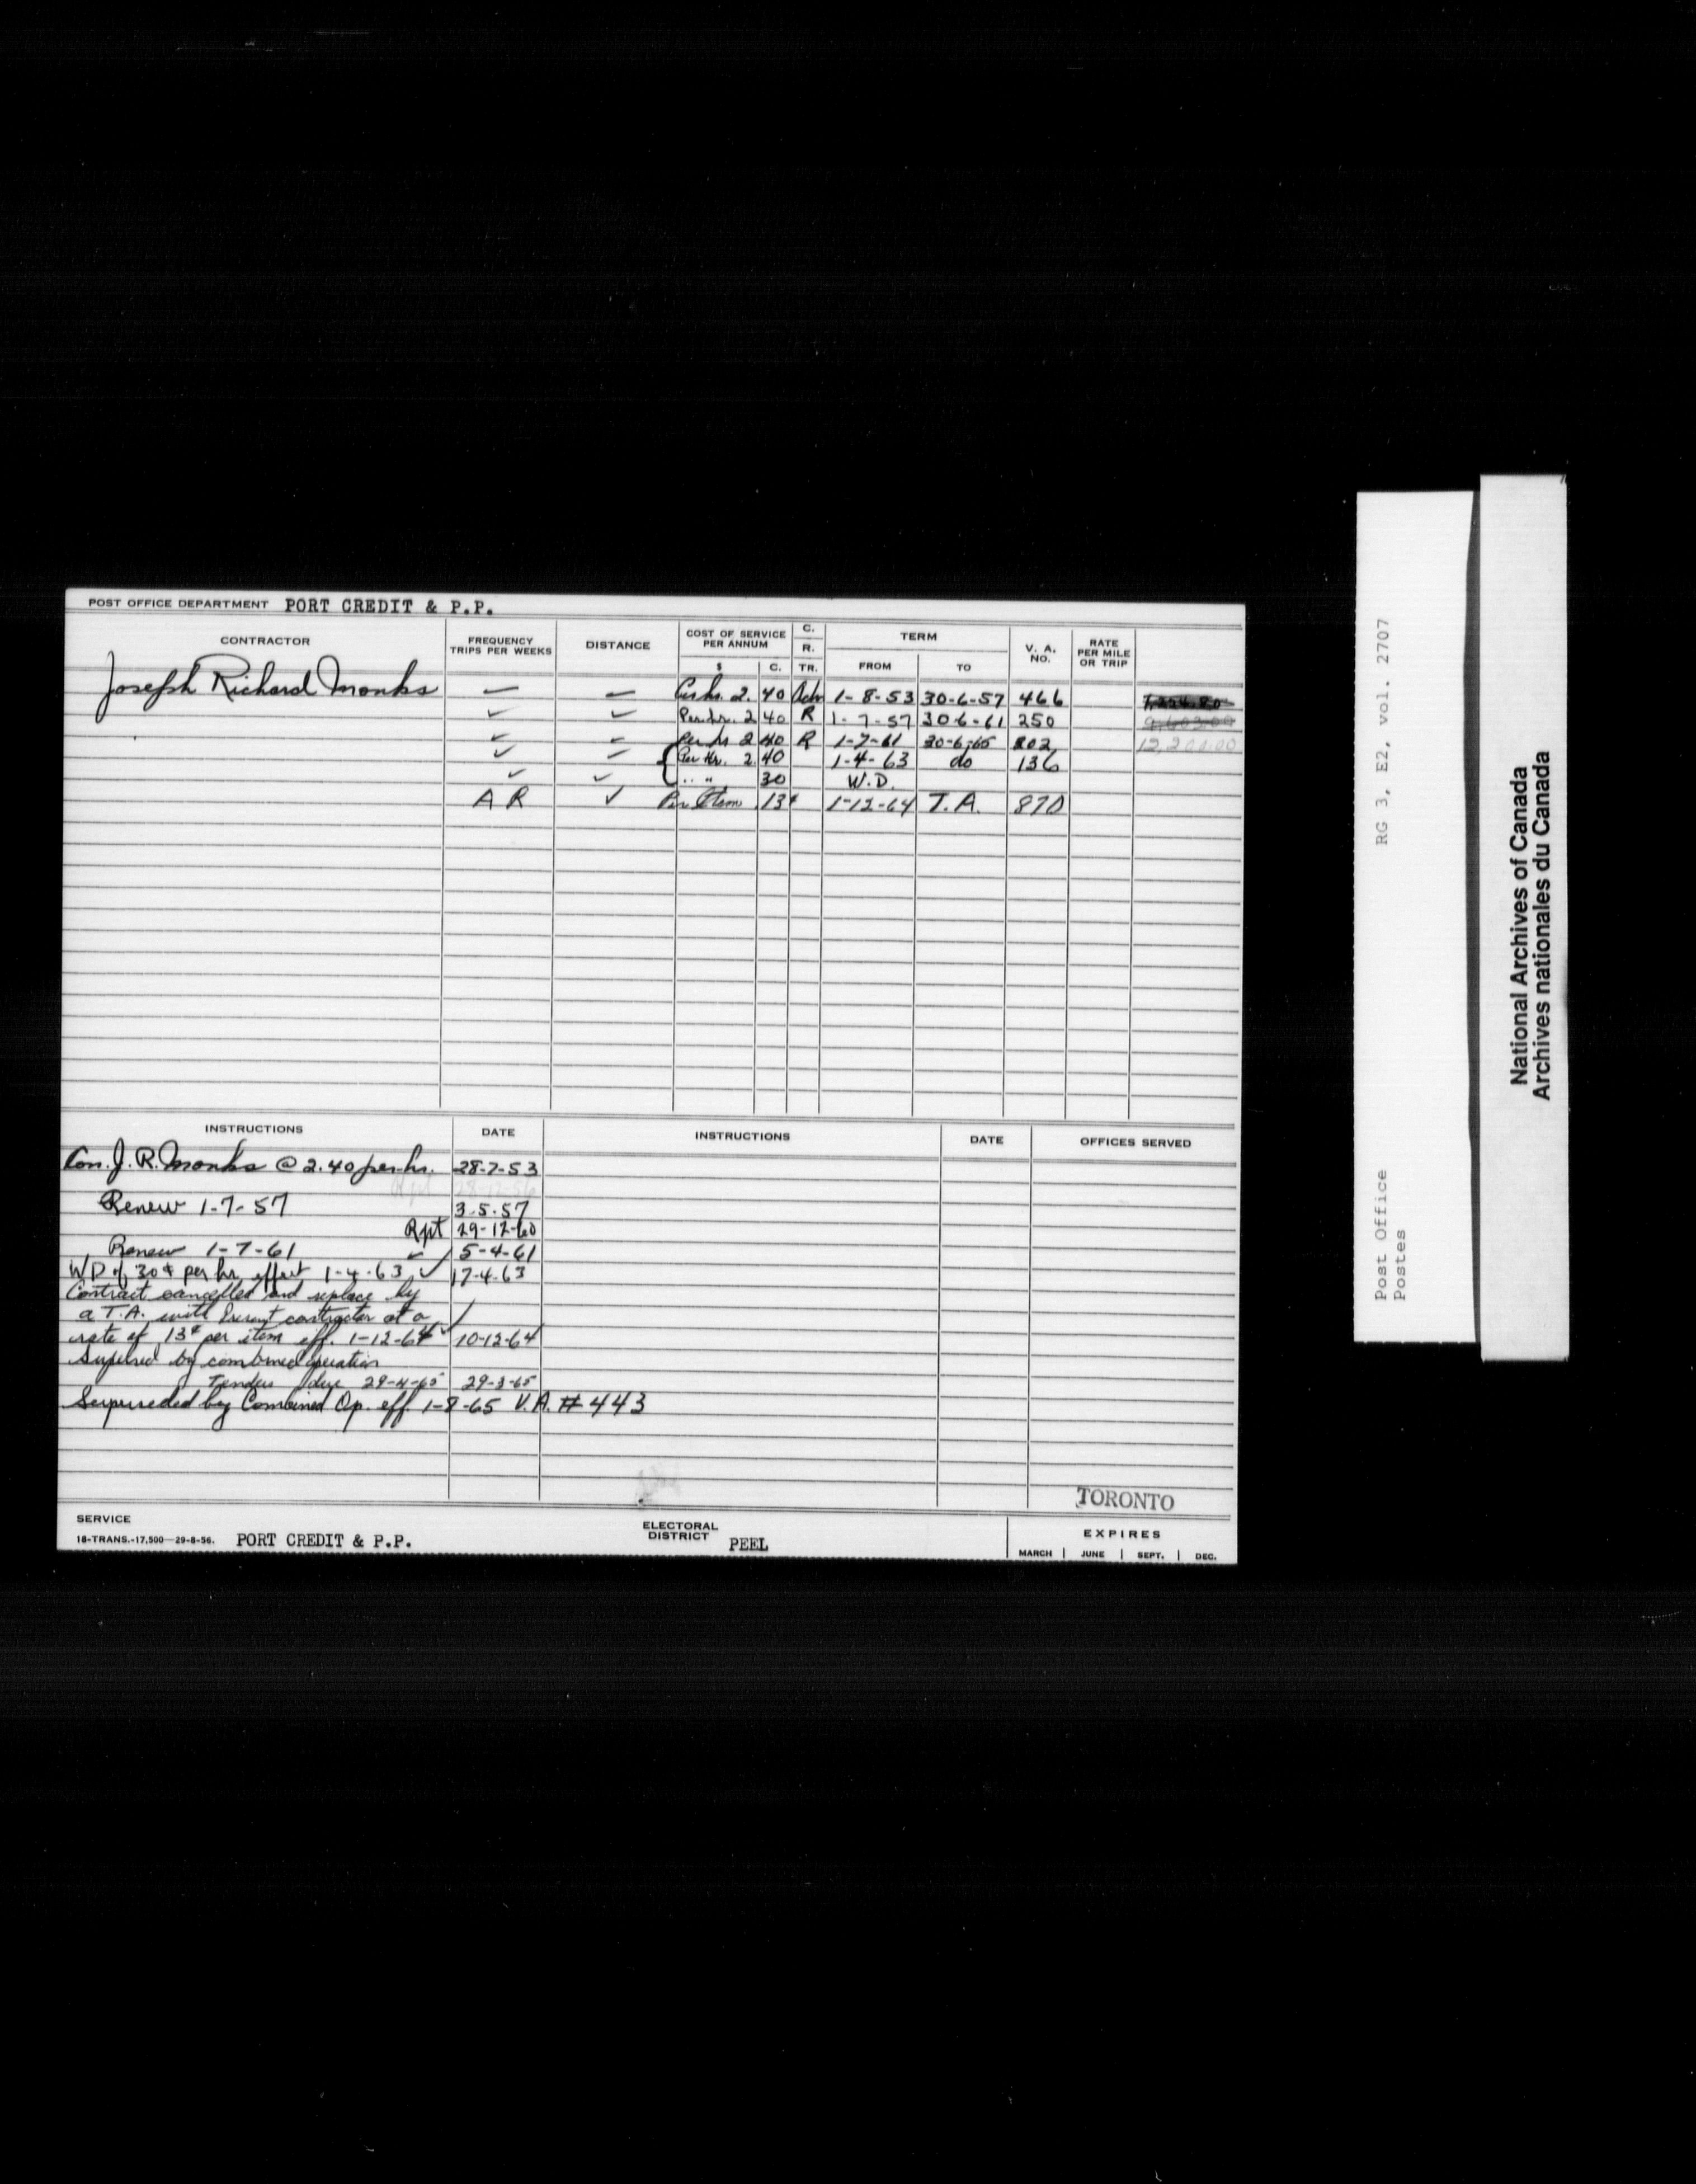 POST OFFICE DEPARTMENT PORT CREDIT & P.P.
CONTRACTOR FREQUENCY TRIPS PER WEEKS DISTANCE COST OF SERVICE PER ANNUM $ C. C. R. TR. TERM FROM TO V. A. NO. RATE PER MILE OR TRIP
Joseph Richard Monks — — 2. 40 1-8-53 30-6-57 466
✓ ✓ Per hr. 2 40 R 1-7-57 30-6-61 250 9,603.00
✓ — Per hr 2 40 R 1-7-61 30-6-65 202
✓ — Per Hr. 2 40 1-4-63 do 136
✓ ✓ .. " 30 W.D.
A R ✓ Per Item 13¢ 1-12-64 T.A. 870
INSTRUCTIONS DATE INSTRUCTIONS DATE OFFICES SERVED
Con. J. R. Monks @ 2.40 per hr. 28-7-53
Rpt 28-12-56
Renew 1-7-57 3.5.57
Rpt 29-12-60
Renew 1-7-61 ✓ 5-4-61
WD of 30¢ per hr effect 1-4-63 ✓ 17-4-63
Contract cancelled and replace by
a T.A. with present contractor at a
rate of 13¢ per item eff. 1-12-64 ✓ 10-12-64
by combined operation
Tenders due 29-4-65 29-3-65
Superseded by Combined Op. eff. 1-8-65 V.A. # 443
TORONTO
SERVICE
18-TRANS.-17,500—29-8-56. PORT CREDIT & P.P. ELECTORAL DISTRICT PEEL EXPIRES
MARCH | JUNE | SEPT. | DEC.
Post Office RG 3, E2, vol. 2707
Postes
National Archives of Canada
Archives nationales du Canada